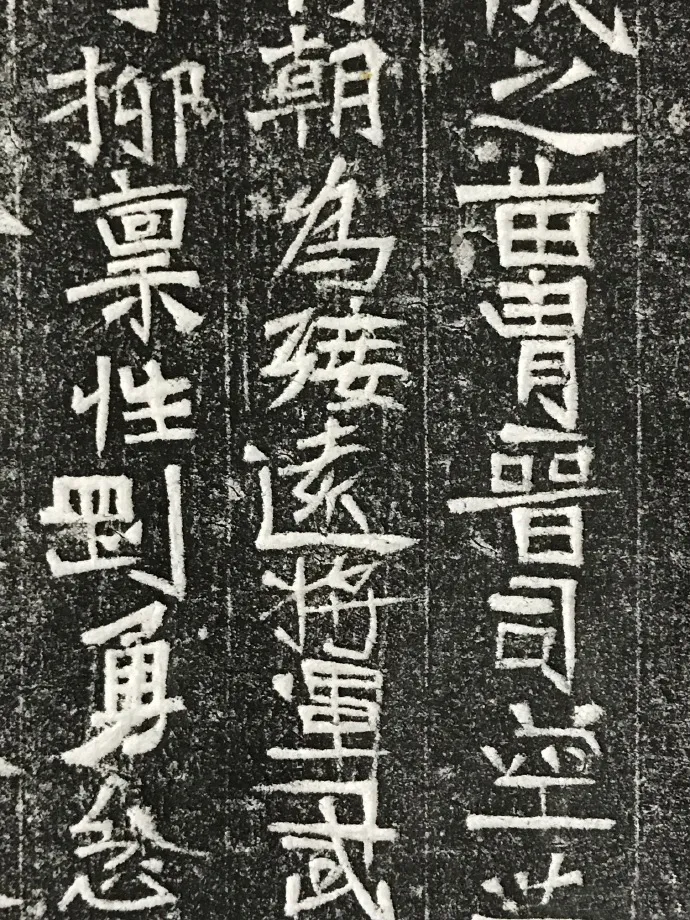 之苗胄晉司空
朝為綏遠將軍武
稟性剛勇